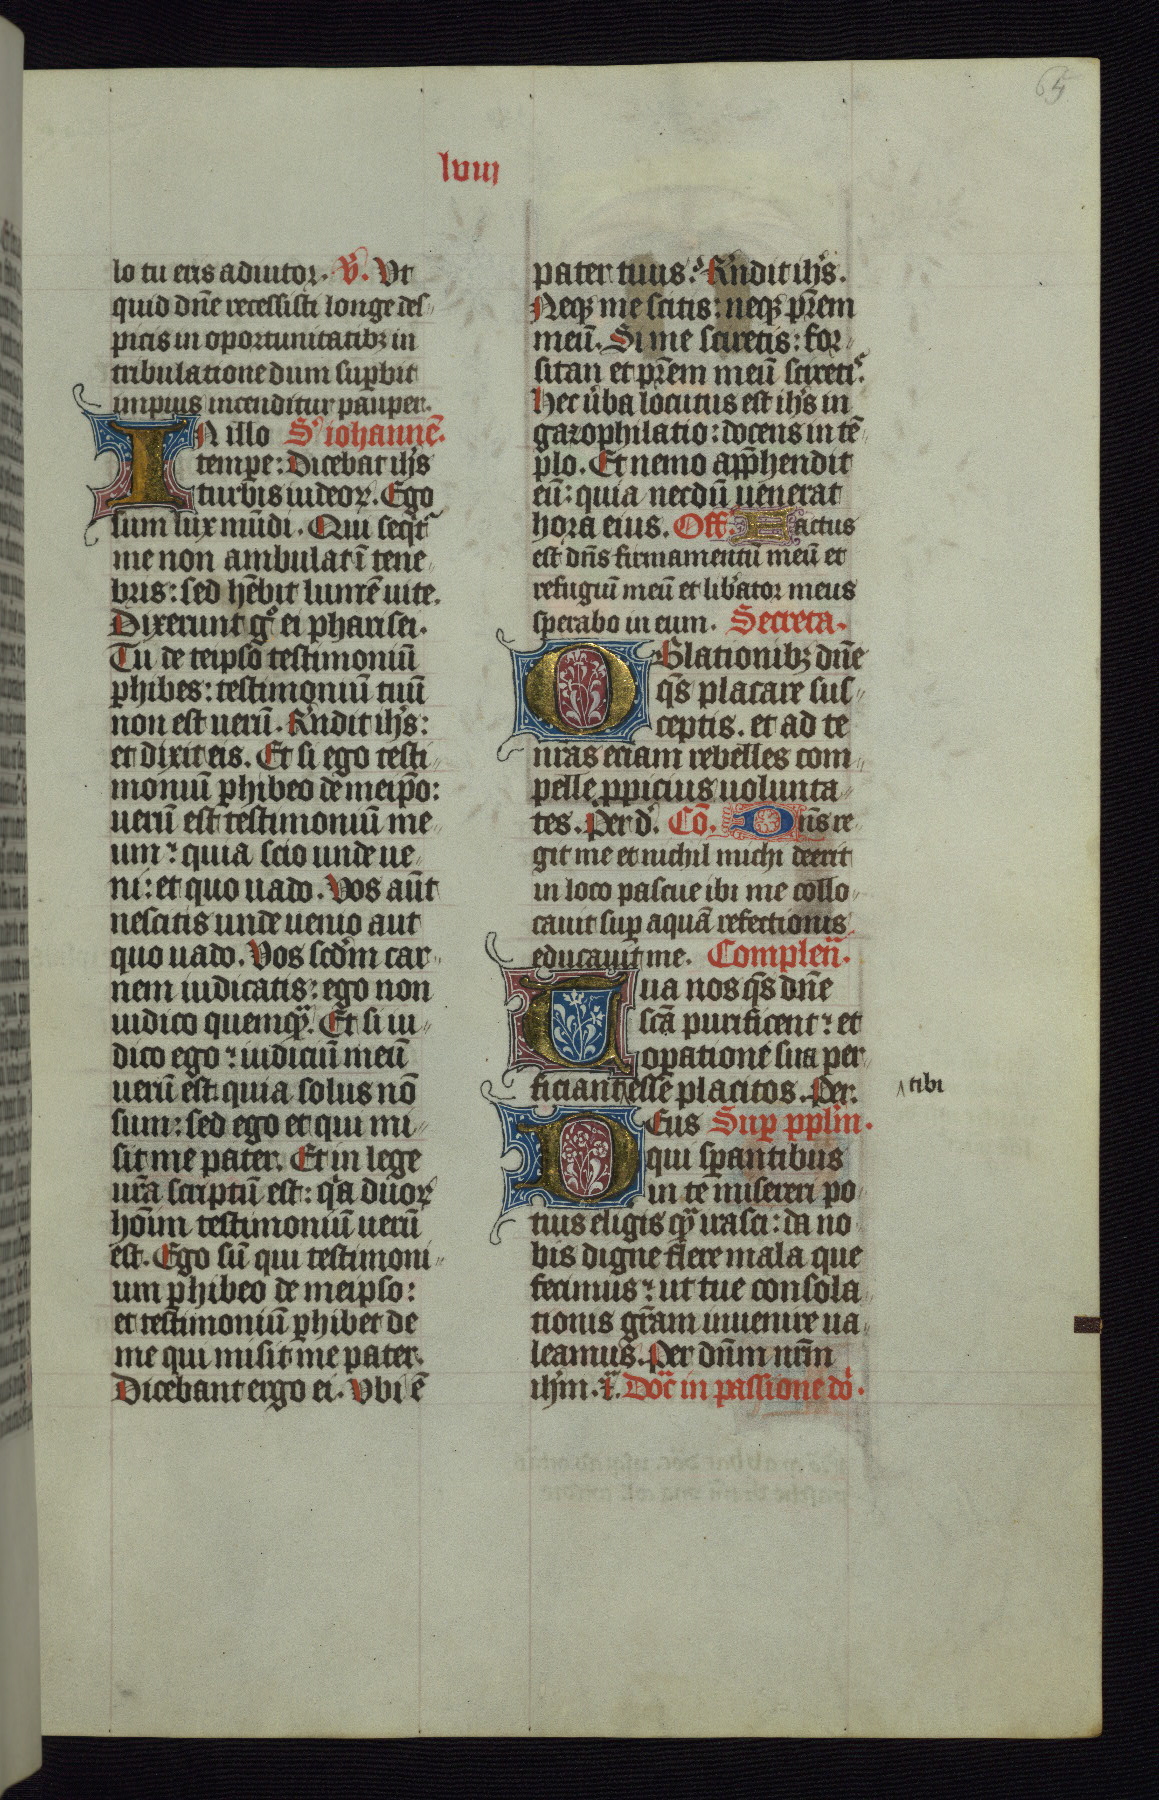 65
lviii
lo tu eris adiutor. V̄. Vt
quid dn̄e recessisti longe des
picis in oportunitatibꝫ in
tribulatione dum suꝑbit
impius incenditur pauper.
IN illo Sꝰ iohannē.
tempe: Dicebat ih̄s
turbis iudeoꝝ. Ego
sum lux mūdi. Qui seqͥtᷣ
me non ambulat ī tene
bris: sed hēbit lumē uite.
Dixerunt gͦ ei pharisei.
Tu de teipso testimoniū
ꝑhibes: testimoniū tuū
non est uerū. R̄ndit ih̄s:
et dixit eis. Et si ego testi
moniū ꝑhibeo de meip̄o:
uerū est testimoniū me
um: quia scio unde ue
ni: et quo uado. Vos aūt
nescitis unde uenio aut
quo uado. Vos scd̄m car
nem iudicatis: ego non
iudico quemqͣꝫ. Et si iu
dico ego: iudiciū meū
uerū est: quia solus nō
sum: sed ego et qui mi
sit me pater. Et in lege
ur̄a scriptū est: qͣa duoꝝ
hoīm testimoniū uerū
est. Ego sū qui testimoni
um ꝑhibeo de meipso:
et testimoniū ꝑhibet de
me qui misit me pater.
Dicebant ergo ei. Vbi ē
pater tuus? R̄ndit ih̄s.
Neqꝫ me scitis: neqꝫ pr̄em
meū. Si me sciretis: for
sitan et pr̄em meū scireti.ˢ
Hec u̇ba locutus est ih̄s in
gazophilatio: docens in tē
plo. Et nemo app̄hendit
eū: quia necdū uenerat
hora eius. Off. Factus
est dn̄s firmamentū meū et
refugiū meū et libᷣator meus
sperabo in eum. Secreta.
OBlationibꝫ dn̄e
qs̄ placare sus
ceptis. et ad te
nr̄as eciam rebelles com
pelle ꝓpicius uolunta
tes. Per d̄. Cō. Dn̄s re
git me et nichil michi deerit
in loco pascue ibi me collo
cauit suꝑ aquā refectionis
educauit me. Complen̄.
Tua nos qs̄ dn̄e
scā purificent: et
opatione sua per
ficiant esse placitos. Per.
^ tibi
DEus Suꝑ pplm̄.
qui sꝑantibus
in te misereri po
tius eligis qͣꝫ irasci: da no
bis digne flere mala que
fecimus: ut tue consola
tionis gr̄am inuenire ua
leamus. Per dn̄m nr̄m
ih̄m. x̄. Doc̄ in passione dō.